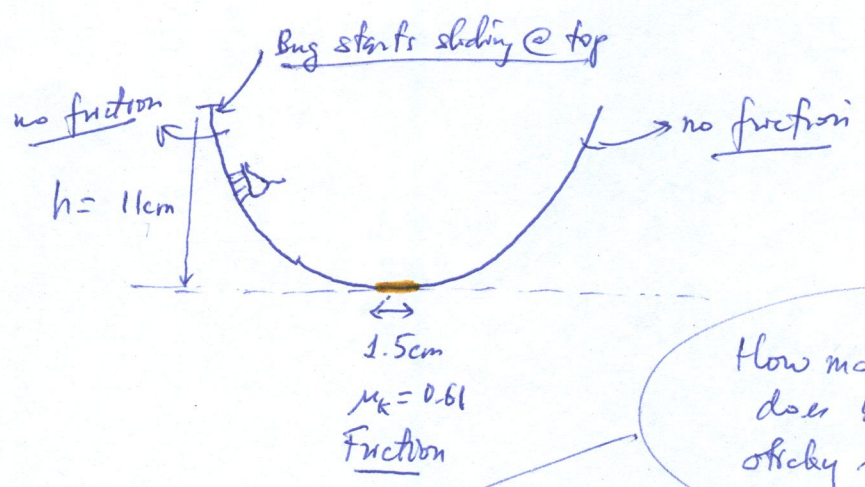 Bug starts sliding @ top
no friction
no friction
h = 11cm
1.5cm
μk = 0.61
Friction
How ma
does
sticky